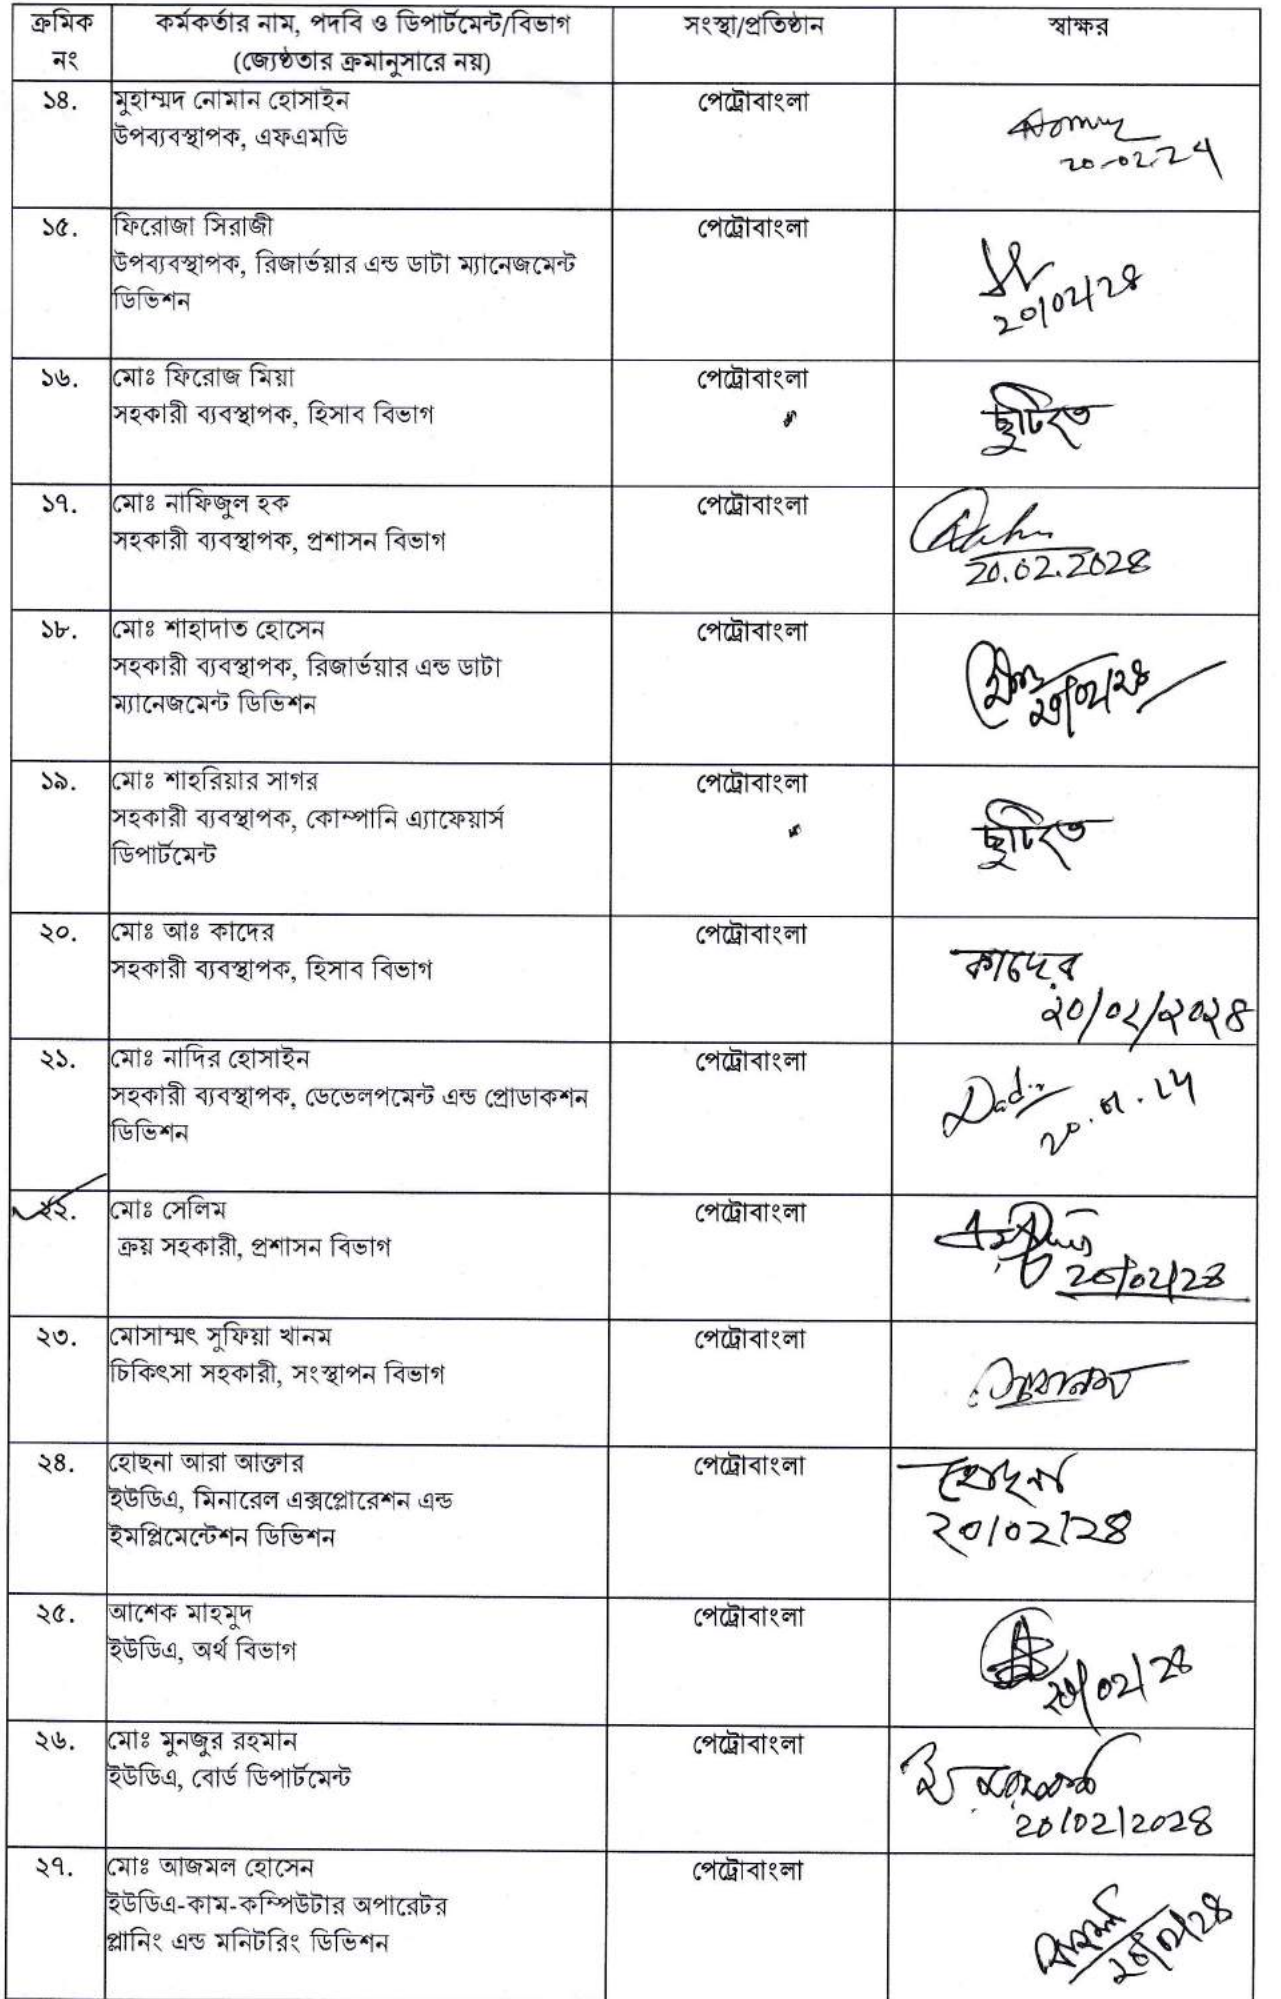 ক্রমিক নং
কর্মকর্তার নাম, পদবি ও ডিপার্টমেন্ট/বিভাগ
(জ্যেষ্ঠতার ক্রমানুসারে নয়)
সংস্থা/প্রতিষ্ঠান
স্বাক্ষর
১৪.
মুহাম্মদ নোমান হোসাইন
উপব্যবস্থাপক, এফএমডি
পেট্রোবাংলা
20-02-24
১৫.
ফিরোজা সিরাজী
উপব্যবস্থাপক, রিজার্ভয়ার এন্ড ডাটা ম্যানেজমেন্ট
ডিভিশন
পেট্রোবাংলা
২০/০২/২৪
১৬.
মোঃ ফিরোজ মিয়া
সহকারী ব্যবস্থাপক, হিসাব বিভাগ
পেট্রোবাংলা
ছুটিতে
১৭.
মোঃ নাফিজুল হক
সহকারী ব্যবস্থাপক, প্রশাসন বিভাগ
পেট্রোবাংলা
২০.০২.২০২৪
১৮.
মোঃ শাহাদাত হোসেন
সহকারী ব্যবস্থাপক, রিজার্ভয়ার এন্ড ডাটা
ম্যানেজমেন্ট ডিভিশন
পেট্রোবাংলা
২০/০২/২৪
১৯.
মোঃ শাহরিয়ার সাগর
সহকারী ব্যবস্থাপক, কোম্পানি এ্যাফেয়ার্স
ডিপার্টমেন্ট
পেট্রোবাংলা
ছুটিতে
২০.
মোঃ আঃ কাদের
সহকারী ব্যবস্থাপক, হিসাব বিভাগ
পেট্রোবাংলা
কাদের
২০/০২/২০২৪
২১.
মোঃ নাদির হোসাইন
সহকারী ব্যবস্থাপক, ডেভেলপমেন্ট এন্ড প্রোডাকশন
ডিভিশন
পেট্রোবাংলা
২২.
মোঃ সেলিম
ক্রয় সহকারী, প্রশাসন বিভাগ
পেট্রোবাংলা
২০/০২/২৪
২৩.
মোসাম্মৎ সুফিয়া খানম
চিকিৎসা সহকারী, সংস্থাপন বিভাগ
পেট্রোবাংলা
২৪.
হোছনা আরা আক্তার
ইউডিএ, মিনারেল এক্সপ্লোরেশন এন্ড
ইমপ্লিমেন্টেশন ডিভিশন
পেট্রোবাংলা
হোছনা
২০/০২/২৪
২৫.
আশেক মাহমুদ
ইউডিএ, অর্থ বিভাগ
পেট্রোবাংলা
২০/০২/২৪
২৬.
মোঃ মুনজুর রহমান
ইউডিএ, বোর্ড ডিপার্টমেন্ট
পেট্রোবাংলা
২০/০২/২০২৪
২৭.
মোঃ আজমল হোসেন
ইউডিএ-কাম-কম্পিউটার অপারেটর
প্লানিং এন্ড মনিটরিং ডিভিশন
পেট্রোবাংলা
২০/০২/২৪